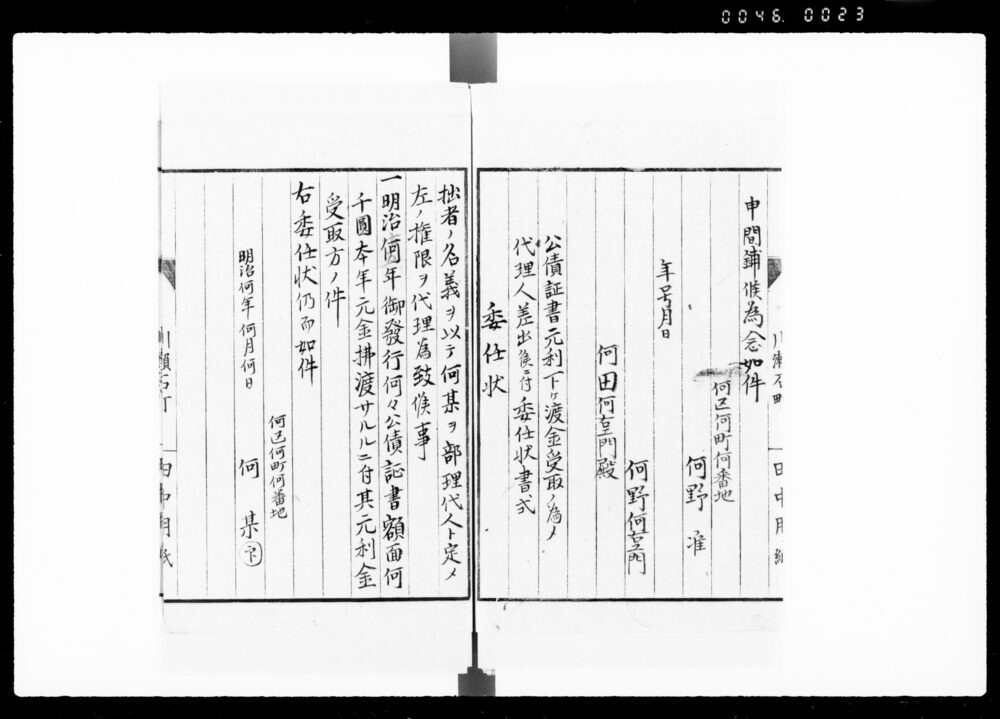 0046. 0023
申間鋪候為念如件
何区何町何番地
何野 准
年号月日
何野何左エ門
何田何左エ門殿
公債証書元利下ケ渡金受取ノ為メ
代理人差出候ニ付委任状書式
委任状
拙者ノ名義ヲ以テ何某ヲ部理代人ト定メ
左ノ権限ヲ代理為致候事
一明治何年御發行何々公債証書額面何
千圓本年元金拂渡サルルニ付其元利金
受取方ノ件
右委任状仍而如件
何区何町何番地
明治何年何月何日
何 某